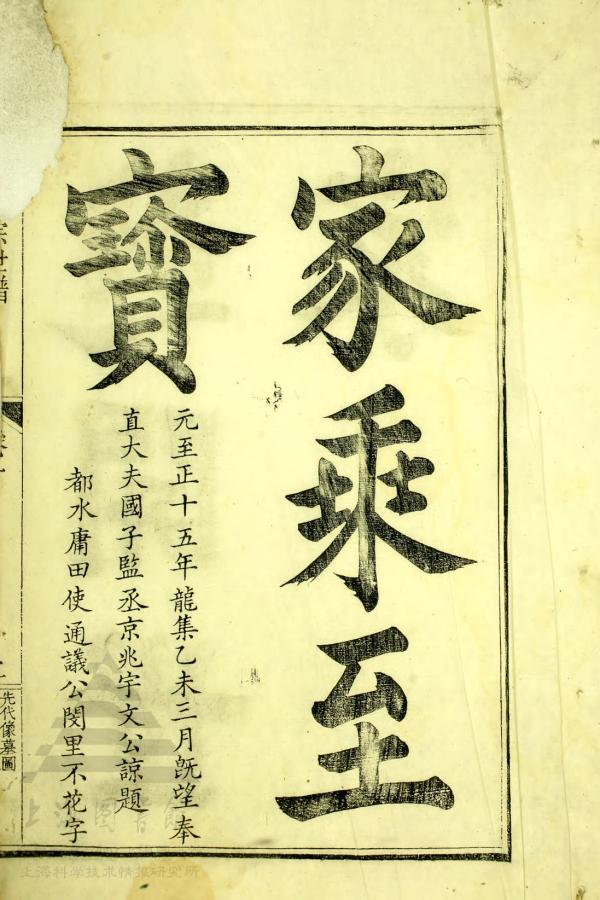 家乘至
寳
元至正十五年龍集乙未三月旣望奉
直大夫國子監丞京兆宇文公諒題
都水庸田使通議公閔里不花字
先代像墓圖
上海科学技术情报研究所